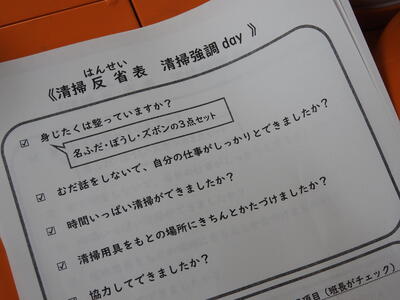 はんせい
《清掃反省表　清掃強調day》
☑ 身じたくは整っていますか?
名ふだ・ぼうし・ズボンの3点セット
☑ むだ話をしないで、自分の仕事がしっかりとできましたか?
☑ 時間いっぱい清掃ができましたか?
☑ 清掃用具をもとの場所にきちんとかたづけましたか?
☑ 協力してできましたか?
項目(班長がチェック)